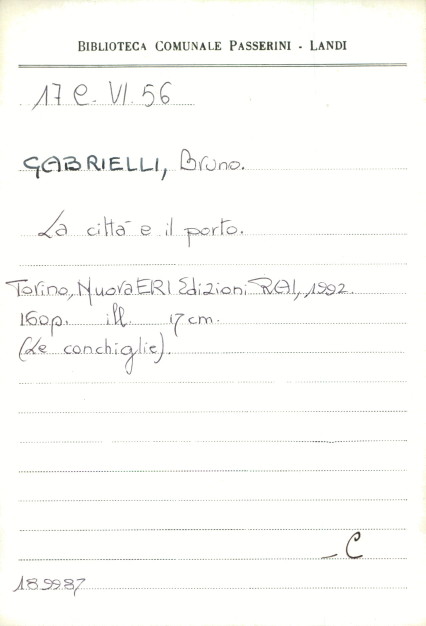 BIBLIOTECA COMUNALE PASSERINI - LANDI
17 C. VI. 56
GABRIELLI, Bruno.
La città e il porto.
Torino, Nuova ERI Edizioni RAI, 1992.
160p. ill. 17 cm.
(Le conchiglie).
- C
189987